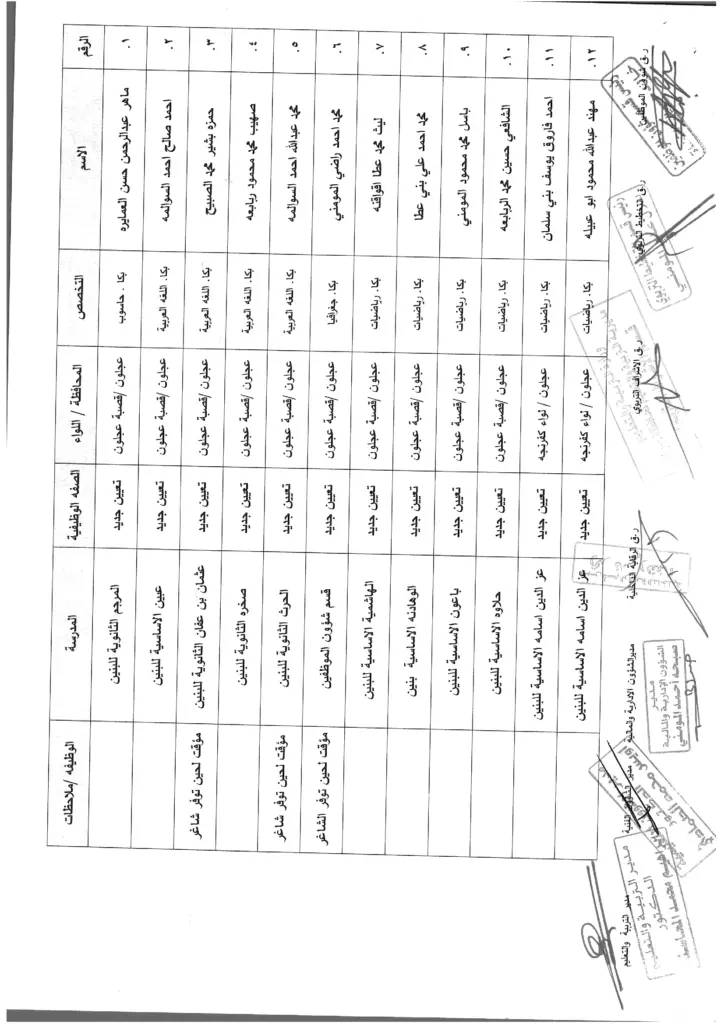 الرقم الاسم التخصص المحافظة / اللواء الصفه الوظيفية المدرسة الوظيفه /ملاحظات
.١ ماهر عبدالرحمن حسن العمايره بكا . حاسوب عجلون /قصبة عجلون تعيين جديد المرجم الثانوية للبنين
.٢ احمد صالح احمد السوالمه بكا. اللغه العربية عجلون /قصبة عجلون تعيين جديد عبين الاساسية للبنين
.٣ حمزه بشير محمد الصبيح بكا. اللغه العربية عجلون /قصبة عجلون تعيين جديد عثمان بن عفان الثانوية للبنين مؤقت لحين توفر شاغر
.٤ صهيب محمد محمود ربابعه بكا. اللغه العربية عجلون /قصبة عجلون تعيين جديد صخره الثانوية للبنين
.٥ محمد عبدالله احمد السوالمه بكا. اللغه العربية عجلون /قصبة عجلون تعيين جديد الحرث الثانوية للبنين مؤقت لحين توفر شاغر
.٦ محمد احمد راضي المومني بكا. جغرافيا عجلون /قصبة عجلون تعيين جديد قسم شؤون الموظفين مؤقت لحين توفر الشاغر
.٧ ليث محمد عطا افواقنه بكا. رياضيات عجلون /قصبة عجلون تعيين جديد الهاشمية الاساسية للبنين
.٨ محمد احمد علي بني عطا بكا. رياضيات عجلون /قصبة عجلون تعيين جديد الوهادنه الاساسية بنين
.٩ باسل محمد محمود المومني بكا. رياضيات عجلون /قصبة عجلون تعيين جديد باعون الاساسية للبنين
.١٠ الشافعي حسين محمد الربابعه بكا. رياضيات عجلون /قصبة عجلون تعيين جديد حلاوه الاساسية للبنين
.١١ احمد فاروق يوسف بني سلمان بكا. رياضيات عجلون / لواء كفرنجه تعيين جديد عز الدين اسامه الاساسية للبنين
.١٢ مهند عبدالله محمود ابو عبيله بكا. رياضيات عجلون / لواء كفرنجه تعيين جديد عز الدين اسامه الاساسية للبنين
ر.ق شؤون الموظفين ر.ق التخطيط التربوي ر.ق الاشراف التربوي ر.ق الرقابة الداخلية مديرالشؤون الادارية والمالية مدير الشؤون الفنية مدير التربية والتعليم
مدير
الشؤون الإدارية والمالية
صبحه أحمد المومني
مدير التربية والتعليم
الدكتور